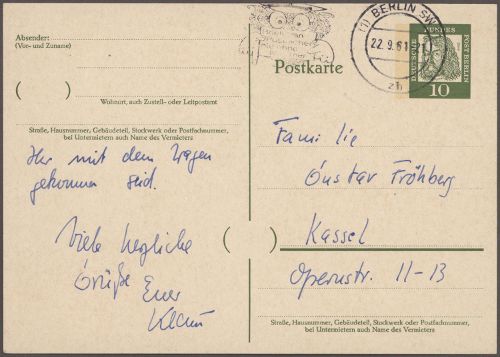 Absender:
(Vor- und Zuname)
Wohnort, auch Zustell- oder Leitpostamt
Straße, Hausnummer, Gebäudeteil, Stockwerk oder Postfachnummer,
bei Untermietern auch Name des Vermieters
Ihr mit dem Wagen
gekommen seid.
Viele herzliche
Grüße Euer
Klaus
(1) BERLIN SW
22.9.61
zh
Postkarte
DEUTSCHE BUNDESPOST BERLIN
10
Familie
Gustav Fröhberg
Kassel
Opernstr. 11-13
Straße, Hausnummer, Gebäudeteil, Stockwerk oder Postfachnummer,
bei Untermietern auch Name des Vermieters